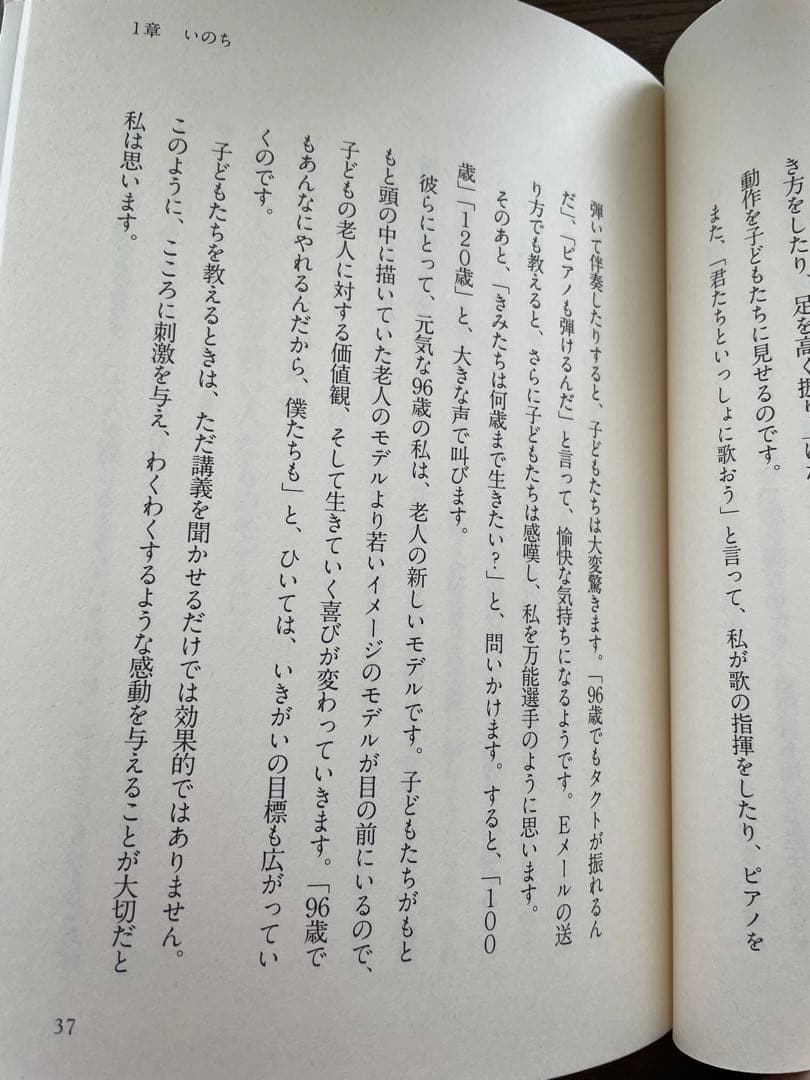 き方をしたり、足を高く振り
動作を子どもたちに見せるのです。
また、「君たちといっしょに歌おう」と言って、私が歌の指揮をしたり、ピアノを
1章　いのち
弾いて伴奏したりすると、子どもたちは大変驚きます。「96歳でもタクトが振れるん
だ」、「ピアノも弾けるんだ」と言って、愉快な気持ちになるようです。Eメールの送
り方でも教えると、さらに子どもたちは感嘆し、私を万能選手のように思います。
そのあと、「きみたちは何歳まで生きたい？」と、問いかけます。すると、「100
歳」「120歳」と、大きな声で叫びます。
彼らにとって、元気な96歳の私は、老人の新しいモデルです。子どもたちがもと
もと頭の中に描いていた老人のモデルより若いイメージのモデルが目の前にいるので、
子どもの老人に対する価値観、そして生きていく喜びが変わっていきます。「96歳で
もあんなにやれるんだから、僕たちも」と、ひいては、いきがいの目標も広がってい
くのです。
子どもたちを教えるときは、ただ講義を聞かせるだけでは効果的ではありません。
このように、こころに刺激を与え、わくわくするような感動を与えることが大切だと
私は思います。
37